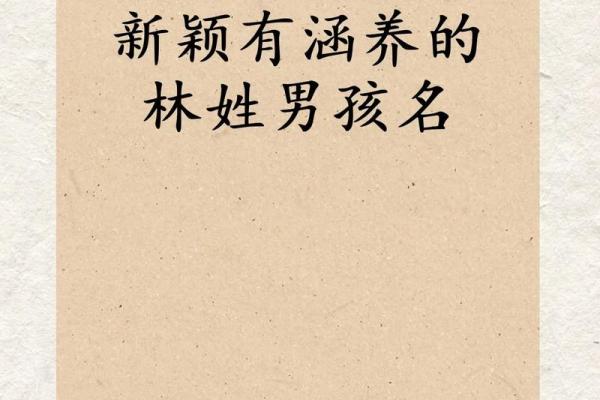 新颖有涵养的
林姓男孩名